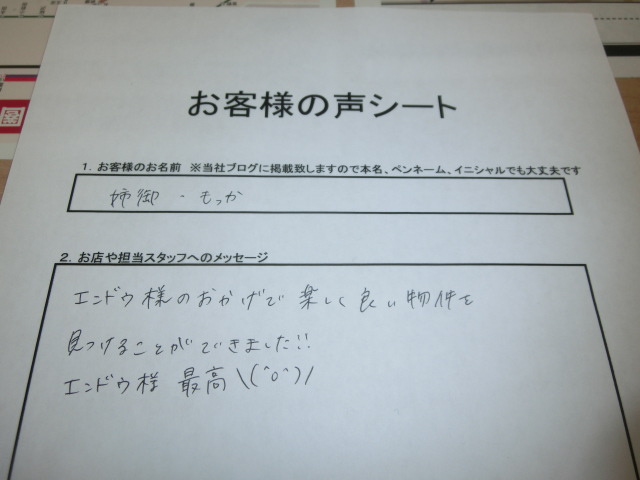 お客様の声シート
1. お客様のお名前 ※当社ブログに掲載致しますので本名、ペンネーム、イニシャルでも大丈夫です
姉御・もっか
2. お店や担当スタッフへのメッセージ
エンドウ様のおかげで楽しく良い物件を
見つけることができました!!
エンドウ様 最高\(^o^)/